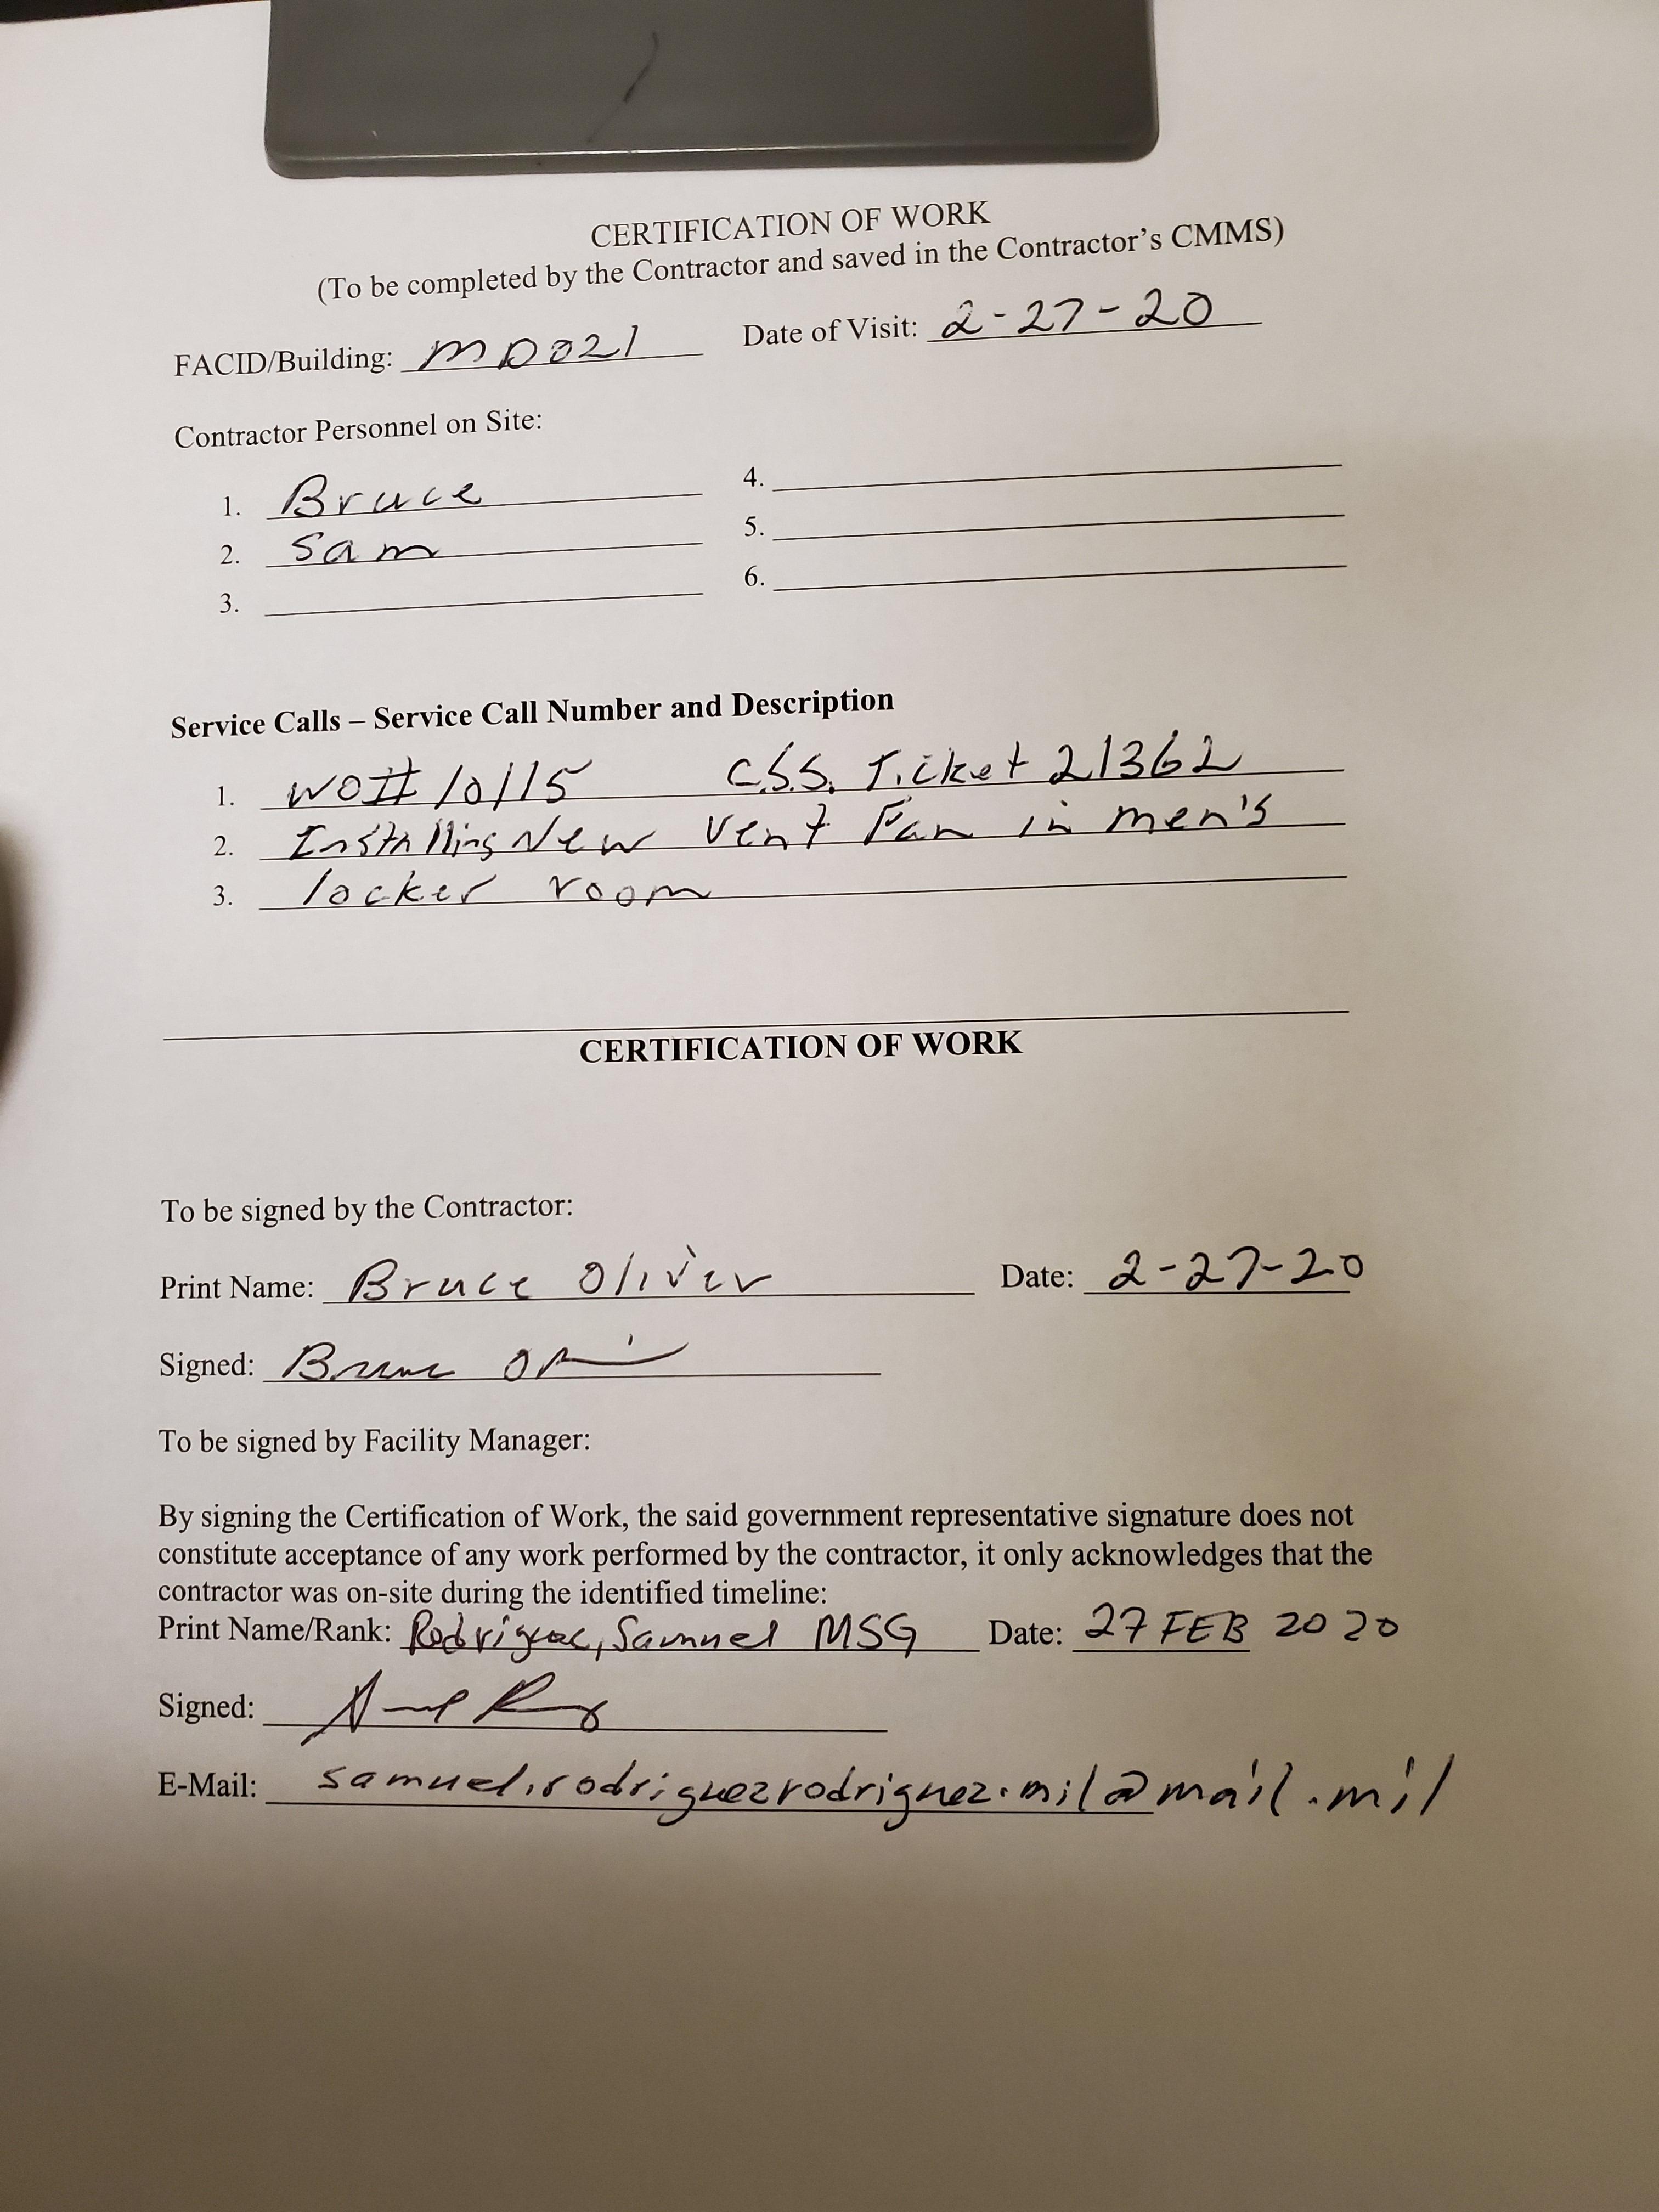 CERTIFICATION OF WORK
(To be completed by the Contractor and saved in the Contractor's CMMS)
FACID/Building: MD021 Date of Visit: 2-27-20
Contractor Personnel on Site:
1. Bruce 4.
2. Sam 5.
3. 6.
Service Calls – Service Call Number and Description
1. WO# 10115 C.S.S. Ticket 21362
2. Installing New Vent Fan in men's
3. locker room
CERTIFICATION OF WORK
To be signed by the Contractor:
Print Name: Bruce Oliver Date: 2-27-20
Signed: Bruce
To be signed by Facility Manager:
By signing the Certification of Work, the said government representative signature does not
constitute acceptance of any work performed by the contractor, it only acknowledges that the
contractor was on-site during the identified timeline:
Print Name/Rank: Rodriguez, Samuel MSG Date: 27 FEB 2020
Signed:
E-Mail: samuel.rodriguezrodriguez.mil@mail.mil